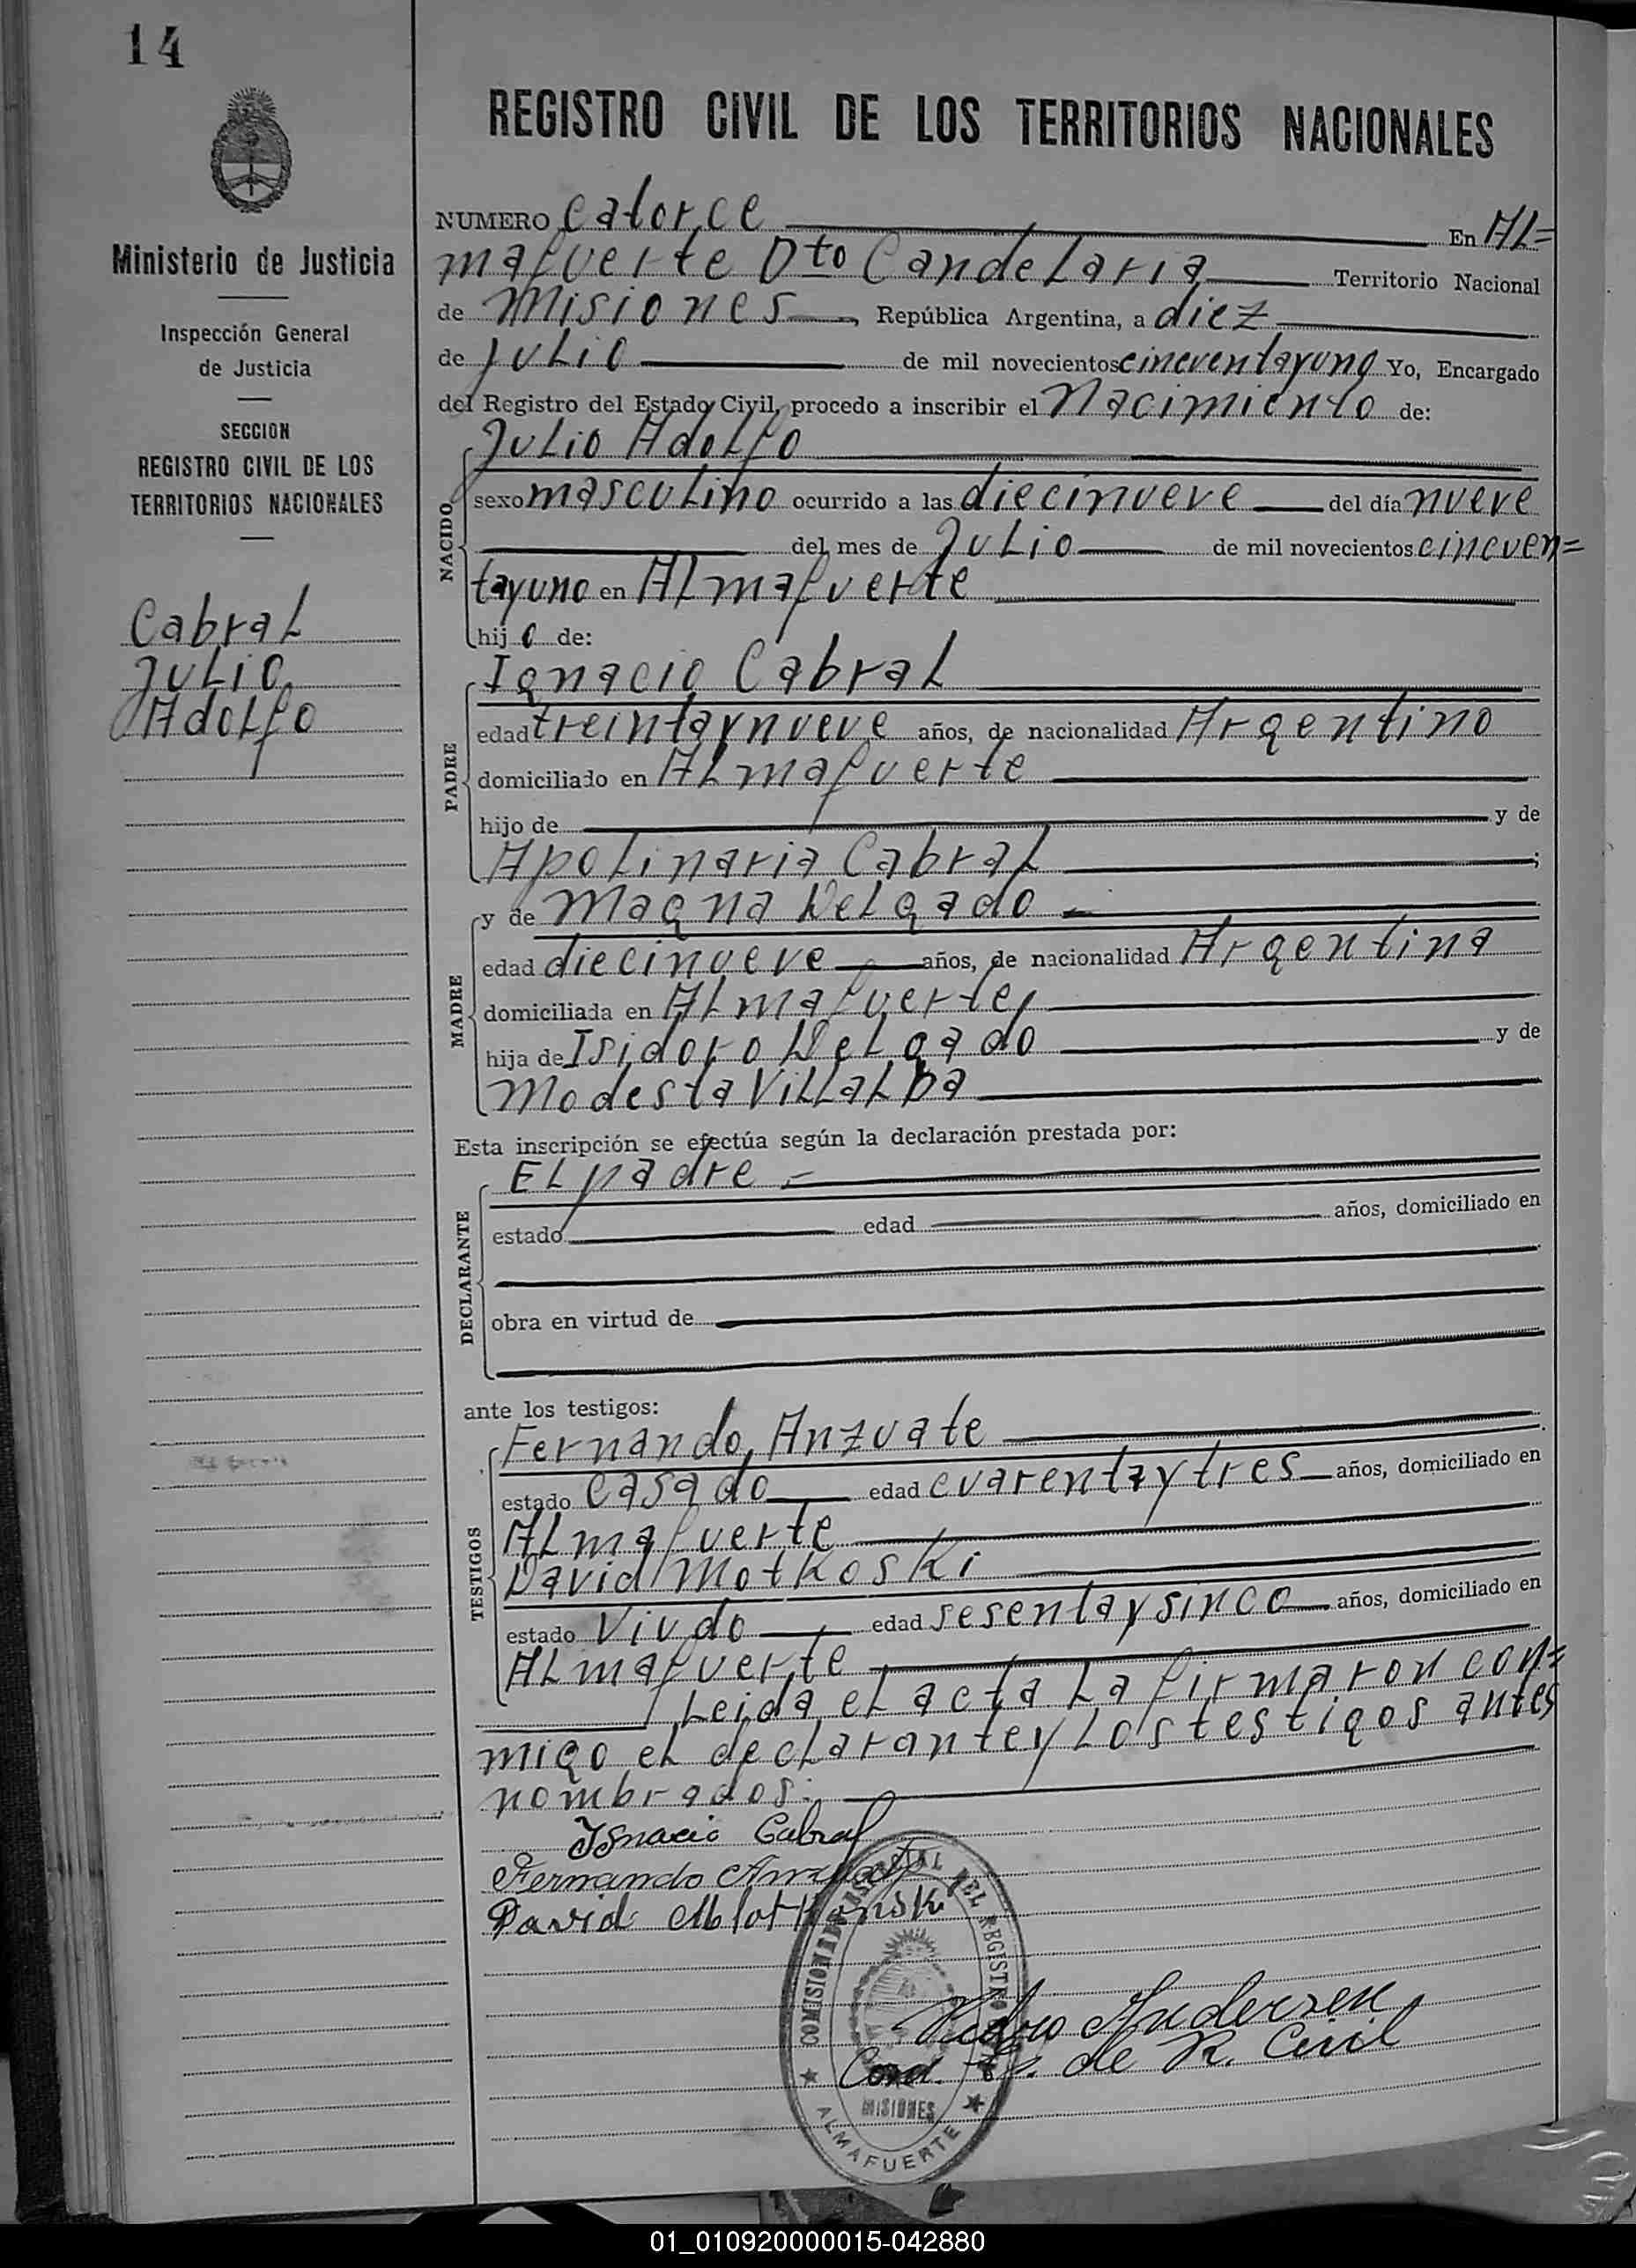 14
REGISTRO CIVIL DE LOS TERRITORIOS NACIONALES
Ministerio de Justicia
Inspección General
de Justicia
SECCION
REGISTRO CIVIL DE LOS
TERRITORIOS NACIONALES
Cabral
Julio
Adolfo
NUMERO catorce En Al=
mafuerte Dto Candelaria Territorio Nacional
de Misiones, República Argentina, a diez
de Julio de mil novecientos cincuentayuno Yo, Encargado
del Registro del Estado Civil, procedo a inscribir el Nacimiento de:
NACIDO
Julio Adolfo
sexo masculino ocurrido a las diecinueve del día nueve
del mes de Julio de mil novecientos cincuen=
tayuno en Almafuerte
hijo de:
PADRE
Ignacio Cabral
edad treintaynueve años, de nacionalidad Argentino
domiciliado en Almafuerte
hijo de y de
Apolinaria Cabral ;
MADRE
y de Magna Delgado
edad diecinueve años, de nacionalidad Argentina
domiciliada en Almafuerte
hija de Isidoro Delgado y de
Modesta Villalba
Esta inscripción se efectúa según la declaración prestada por:
DECLARANTE
El padre.
estado edad años, domiciliado en
obra en virtud de
ante los testigos:
TESTIGOS
Fernando Anzuate
estado Casado edad cuarentaytres años, domiciliado en
Almafuerte
David Motkoski
estado Viudo edad sesentaysinco años, domiciliado en
Almafuerte
Leida el acta la firmaron con=
migo el declarante y los testigos antes
nombrados:
Ignacio Cabral
Fernando
David
COMISIONADO ESPECIAL DEL REGISTRO
MISIONES
ALMAFUERTE
Pedro Andersen
de R. Civil
01_010920000015-042880